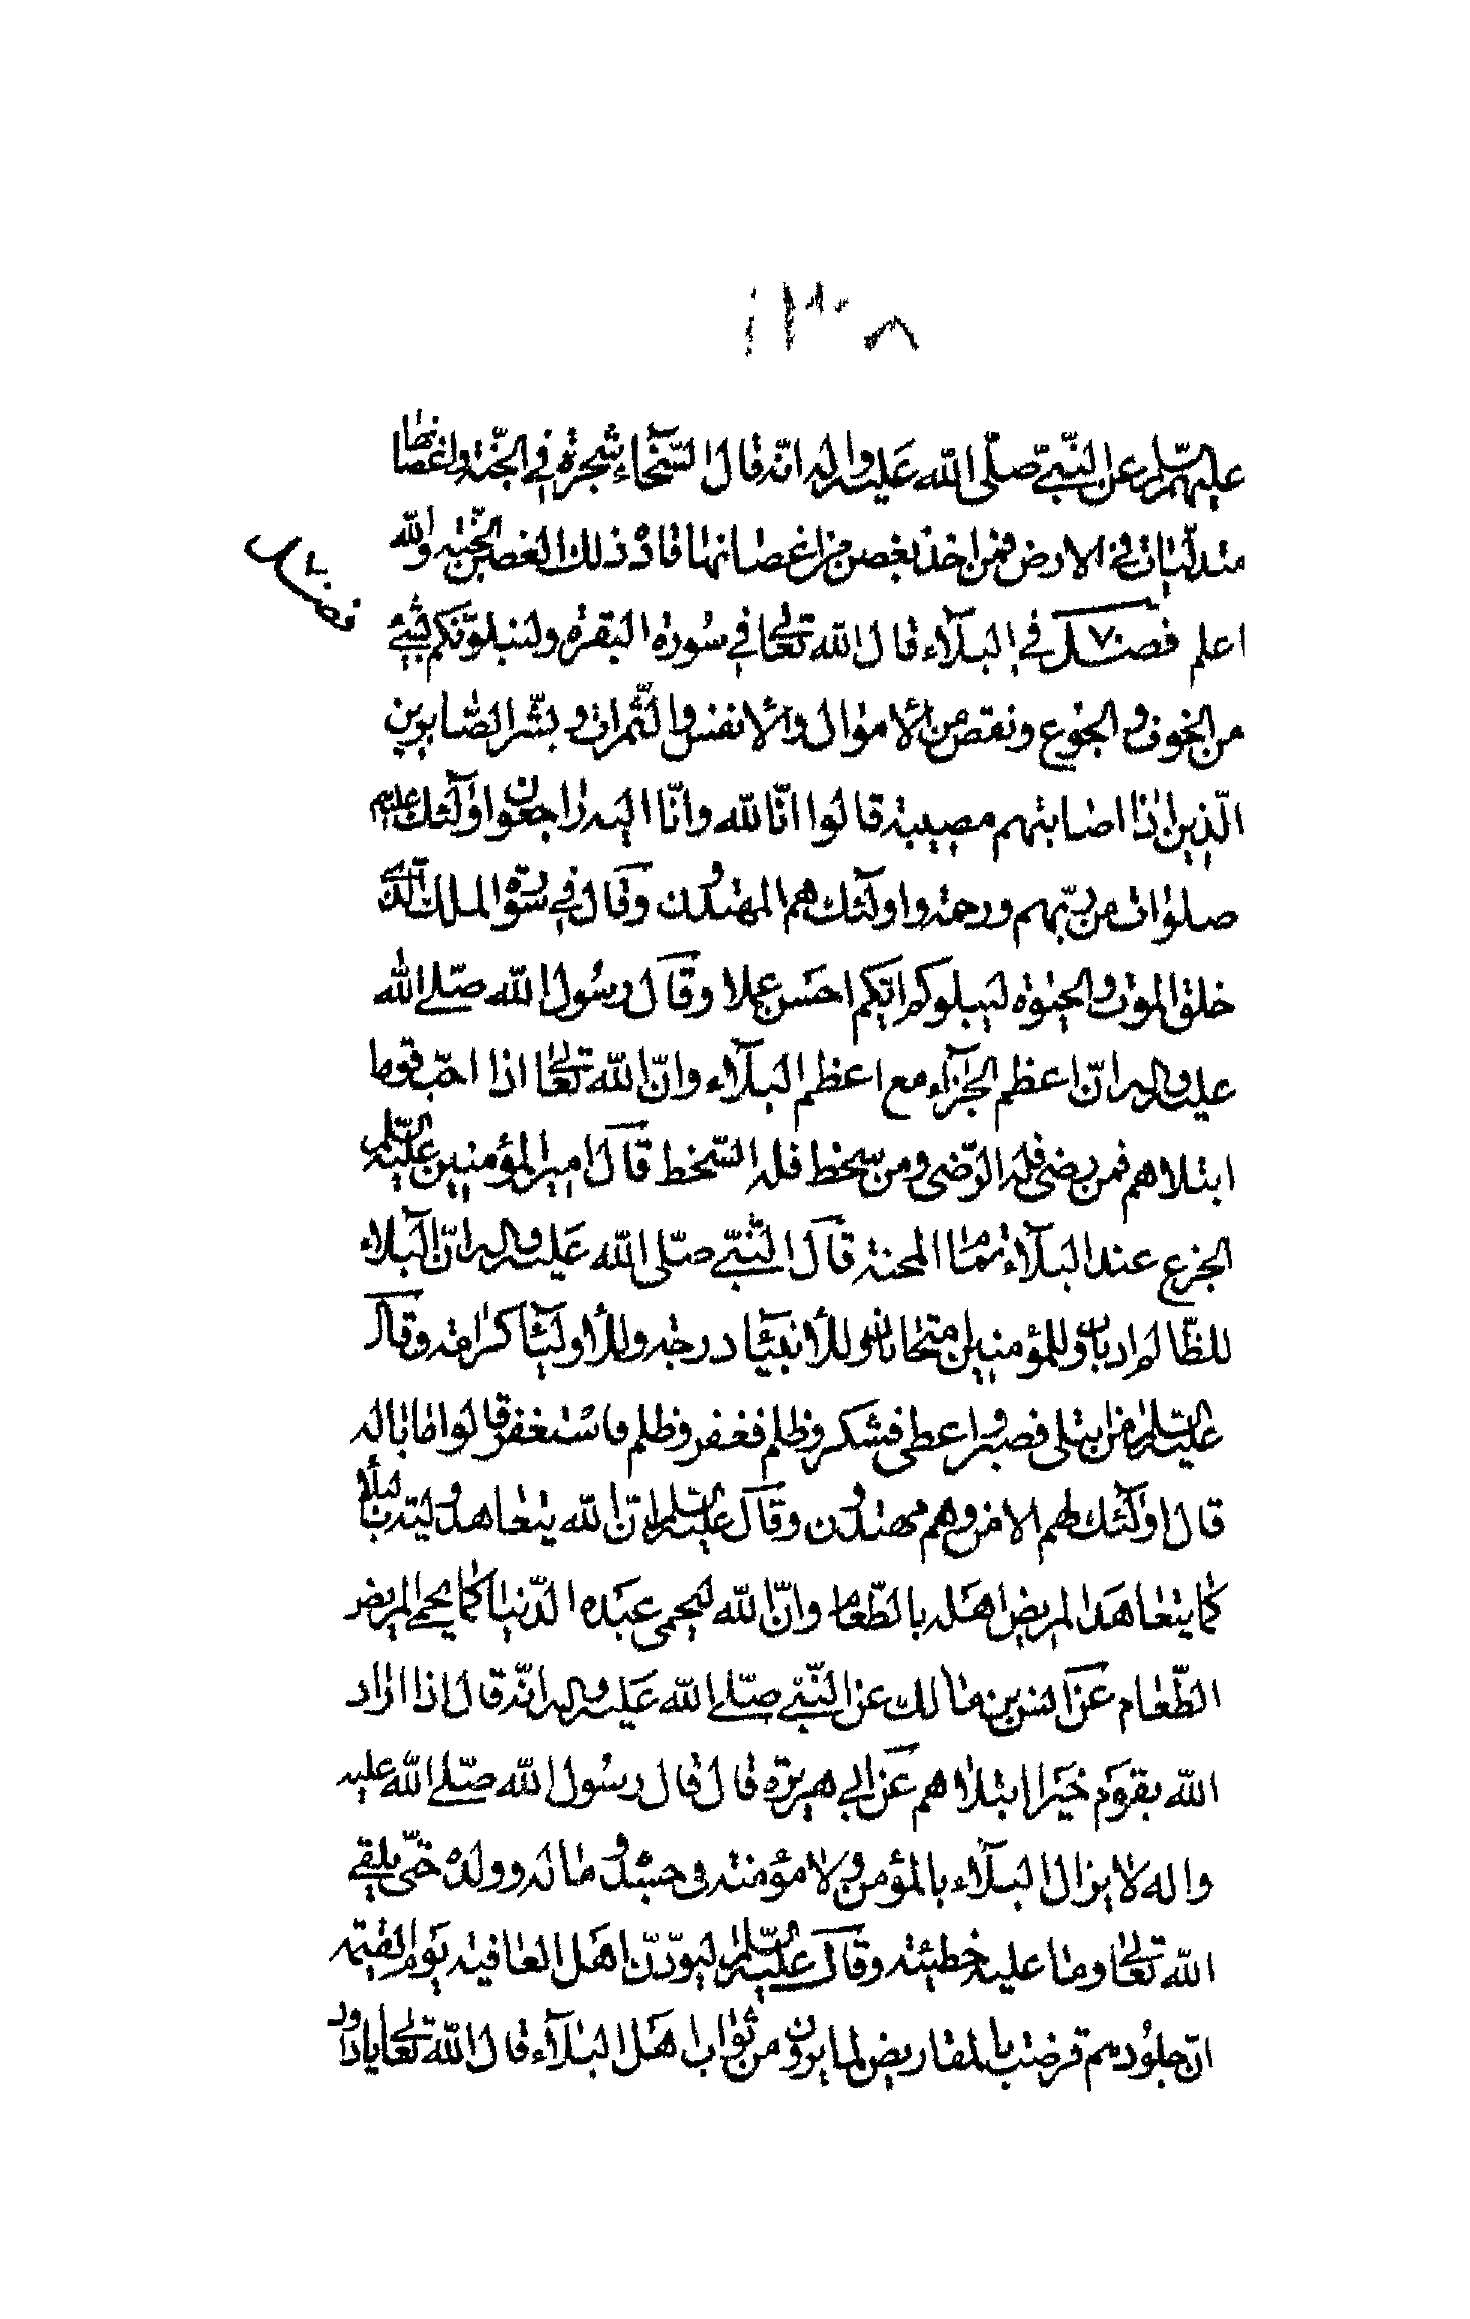 ١٣٨
عليهم السلام عن النبيّ صلّى الله عليه واله انه قال السّخاء شجرة في الجنة واغصانها
متدلّيات في الارض فمن اخذ بغصن من اغصانها قاده ذلك الغصن الجنّة والله
اعلم فصل في البلآء قال الله تعالى في سورة البقرة ولنبلونّكم بشيئ
من الخوف والجوع ونقص من الأموال والأنفس والثّمرات وبشّر الصّابرين
الّذين اذا اصابتهم مصيبة قالوا انّا لله وانّا اليه راجعون اولٓئك عليهم
صلوات من ربّهم ورحمة واولٓئك هم المهتدون وقال في سورة الملك الّذى
خلق الموت والحيوة ليبلوكم ايّكم احسن عملا وقال رسول الله صلّى الله
عليه واله انّ اعظم الجزآء مع اعظم البلآء وانّ الله تعالى اذا احبّ قوما
ابتلاهم فمن رضى فله الرّضى ومن سخط فله السّخط قال امير المؤمنين عليه السلم
الجزع عند البلآء تمام المحنة قال النّبيّ صلّى الله عليه واله انّ البلاء
للظّالم ادب وللمؤمنين امتحان وللأنبيآء درجة وللأوليآء كرامة وقال
عليه السلم من ابتلى فصبر واعطى فشكر وظلم فغفر وظلم فاستغفر قالوا ما باله
قال اولٓئك لهم الامن وهم مهتدون وقال عليه السلم انّ الله يتعاهد وليّه بالبلآء
كما يتعاهد المريض اهله بالطّعام وانّ الله ليحمى عبده الدّنيا كما يحمى المريض
الطّعام عن انس بن مالك عن النّبيّ صلّى الله عليه واله انّه قال اذا اراد
الله بقوم خيرا ابتلاهم عن ابي هريرة قال قال رسول الله صلّى الله عليه
واله لا يزال البلآء بالمؤمن ولا مؤمنة في جسده وماله وولده حتّى يلقى
الله تعالى وما عليه خطيئة وقال عليه السلم ليودّنّ اهل العافية يوم القيمة
انّ جلودهم قرضت بالمقاريض لما يرون من ثواب اهل البلآء قال الله تعالى يا داود